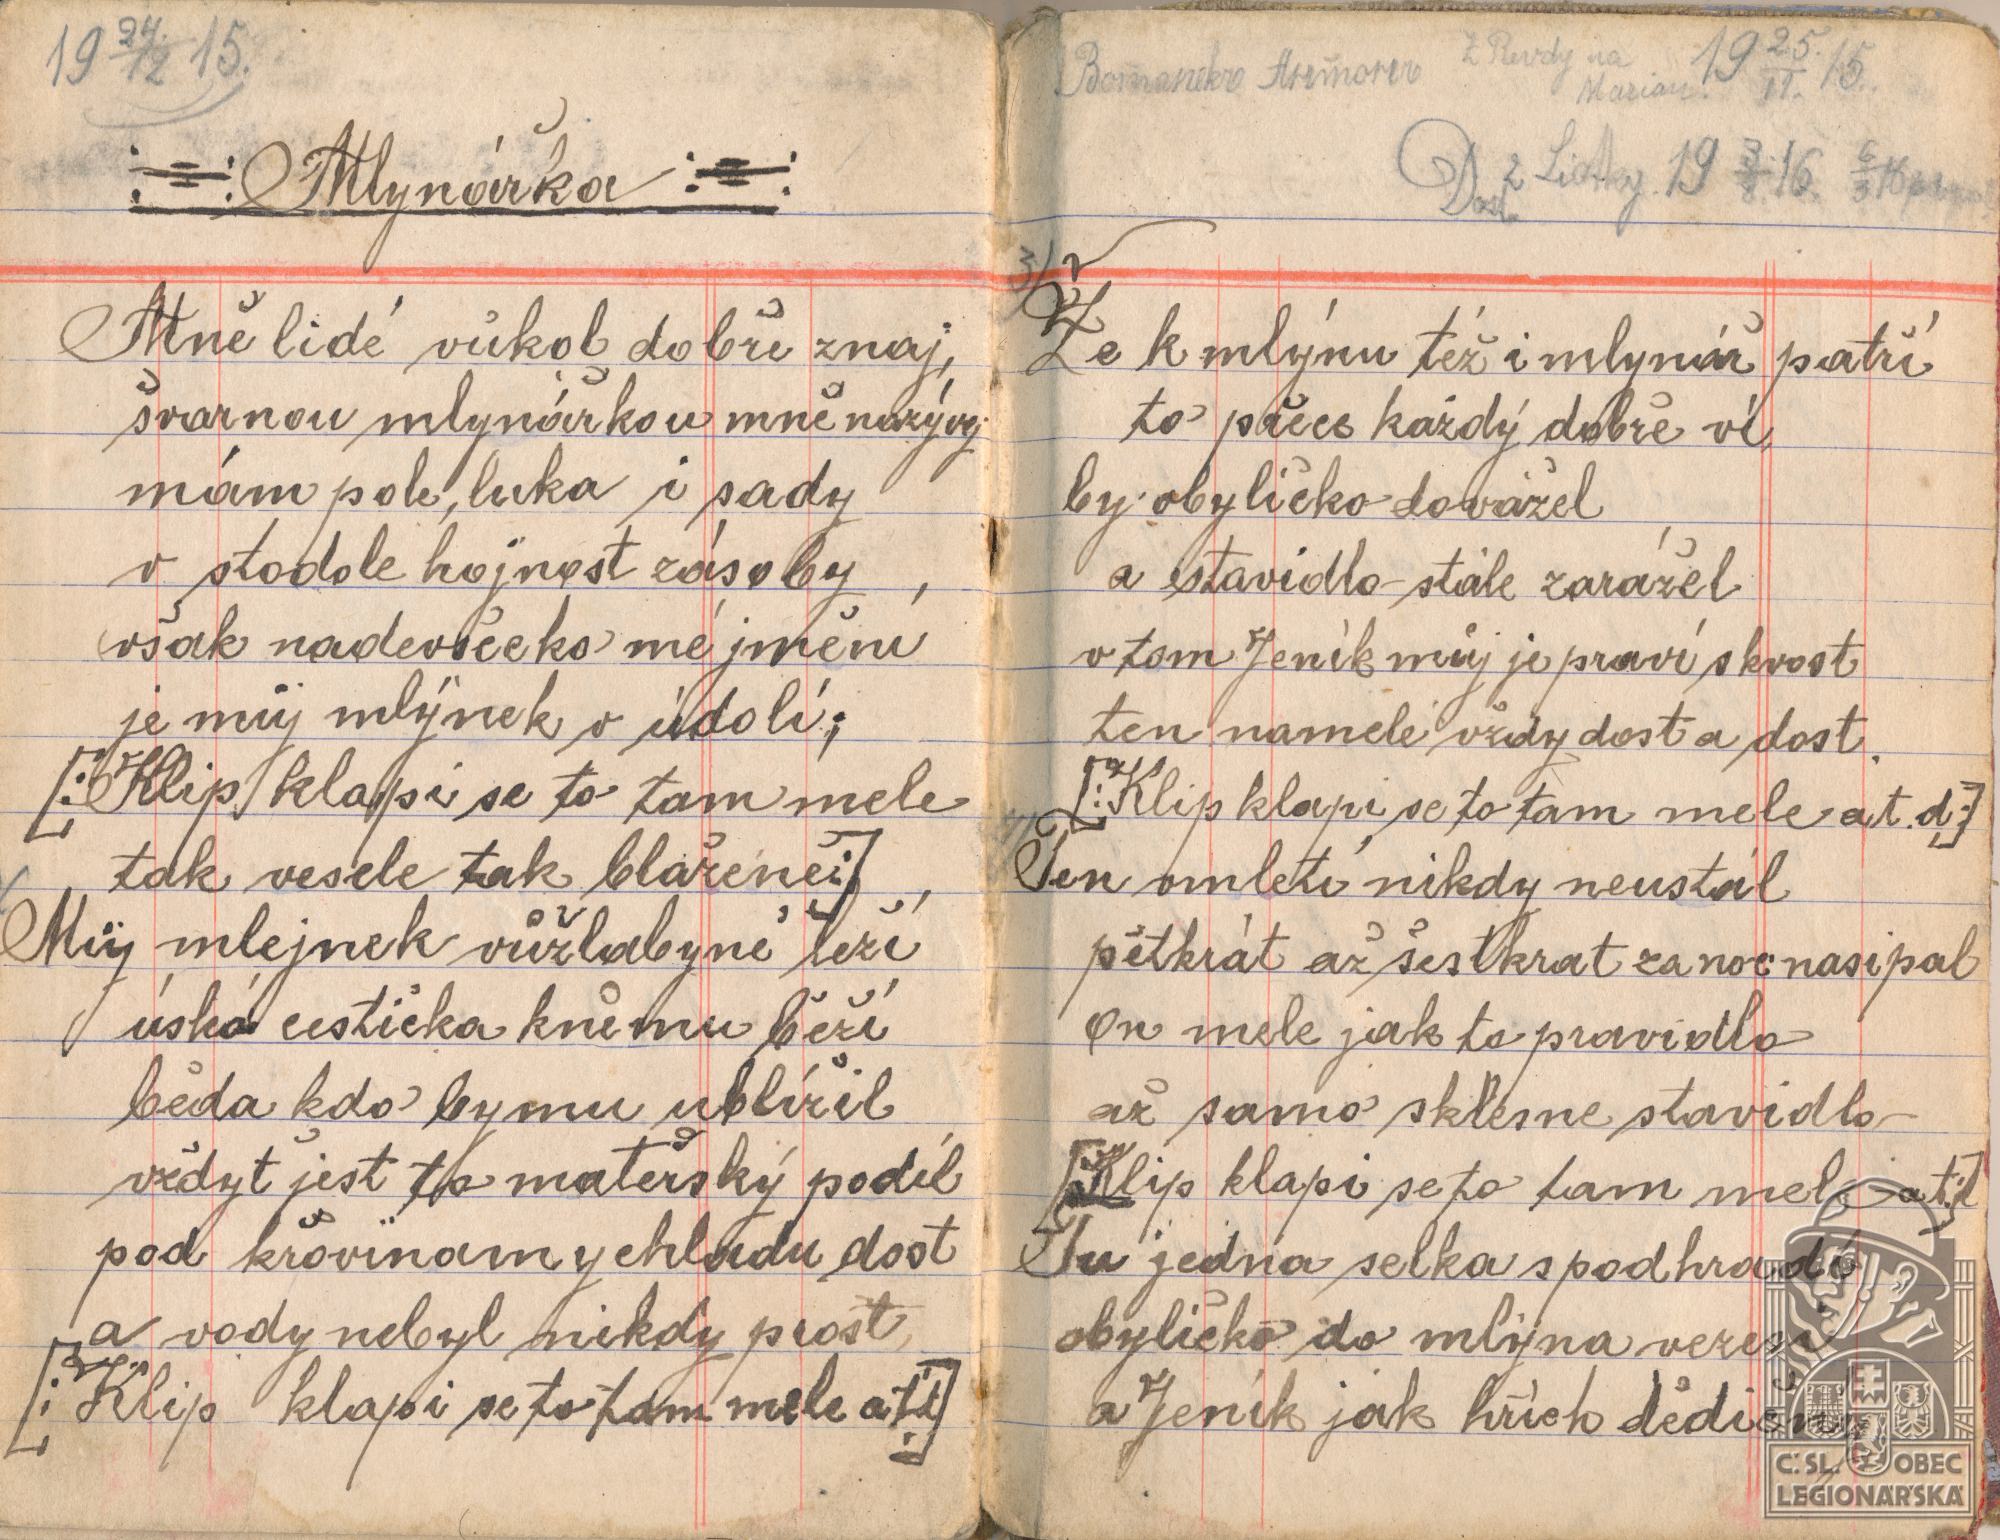 19 24./12 15.
Mlynářka
Mně lidé vůkol dobře znaj,
švarnou mlynářkou mně nazývaj
mám pole, luka i sady
v stodole hojnost zásoby,
však nadevšecko mé jmění
je můj mlýnek v údolí;
[: Klip klapi se to tam mele
tak vesele tak blaženě :]
Můj mlejnek vůžlabyně leží
úská cestička kněmu běží
běda kdo bymu ublížil
vždyť jest to mateřský podíl
pod křovinamy chládu dost
a vody nebyl nikdy prost
[: Klip klapi se to tam mele a t d :]
Z Revdy na Marian. 19 25./11. 15.
Dost. 2 Listky. 19 3/3 16 6/3 16
3) Že k mlýnu též i mlynář patří
to přece každý dobře ví,
by obylíčko dovážel
a stavidlo stále zarážel
v tom Jeník můj je praví skvost
ten namele vždy dost a dost.
[: Klip klapi se to tam mele a t. d :]
4) Ten omletí nikdy neustál
pětkrát až šestkrat za noc nasipal
On mele jak to pravidlo
až samo sklesne stavidlo
[: Klip klapi se to tam mele a t. d :]
Tu jedna selka spodhradí
obylíčko do mlýna veze
a Jeník jak hřích dědičný
Č. SL. OBEC
LEGIONÁŘSKÁ